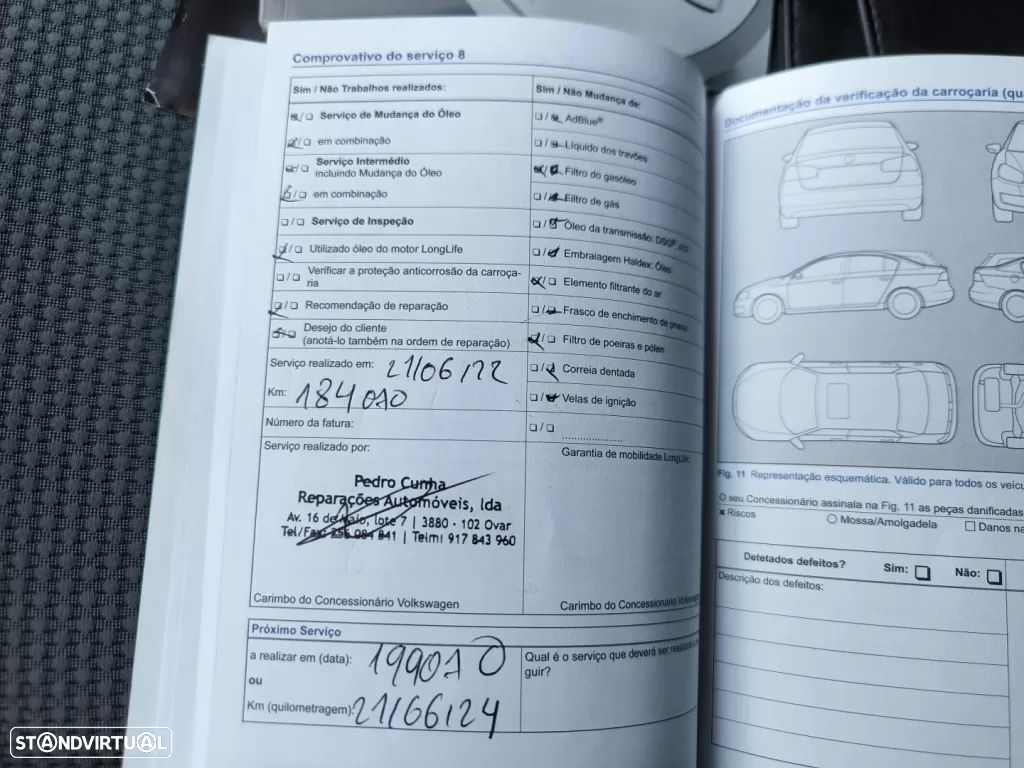 Comprovativo do serviço 8
Sim / Não Trabalhos realizados:
Serviço de Mudança do Óleo
em combinação
Serviço Intermédio
incluindo Mudança do Óleo
em combinação
Serviço de Inspeção
Utilizado óleo do motor LongLife
Verificar a proteção anticorrosão da carroça-
ria
Recomendação de reparação
Desejo do cliente
(anotá-lo também na ordem de reparação)
Serviço realizado em: 21/06/22
Km: 184010
Número da fatura:
Serviço realizado por:
Pedro Cunha
Reparações Automóveis, lda
Av. 16 de Maio, lote 7 | 3880 - 102 Ovar
Tel/Fax: 256 084 841 | Telm: 917 843 960
Carimbo do Concessionário Volkswagen
Sim / Não Mudança de:
AdBlue®
Líquido dos travões
Filtro do gasóleo
Filtro de gás
Óleo da transmissão: DSG®
Embraiagem Haldex: Óleo
Elemento filtrante do ar
Frasco de enchimento de pneus
Filtro de poeiras e pólen
Correia dentada
Velas de ignição
Garantia de mobilidade LongLife:
Carimbo do Concessionário Volkswagen
Próximo Serviço
a realizar em (data): 199010
ou
Km (quilometragem): 21/06/24
Qual é o serviço que deverá ser
guir?
Documentação da verificação da carroçaria (qu
Fig. 11 Representação esquemática. Válido para todos os veícu
O seu Concessionário assinala na Fig. 11 as peças danificadas
x Riscos
Mossa/Amolgadela
Danos na
Detetados defeitos? Sim: Não:
Descrição dos defeitos:
STANDVIRTUAL